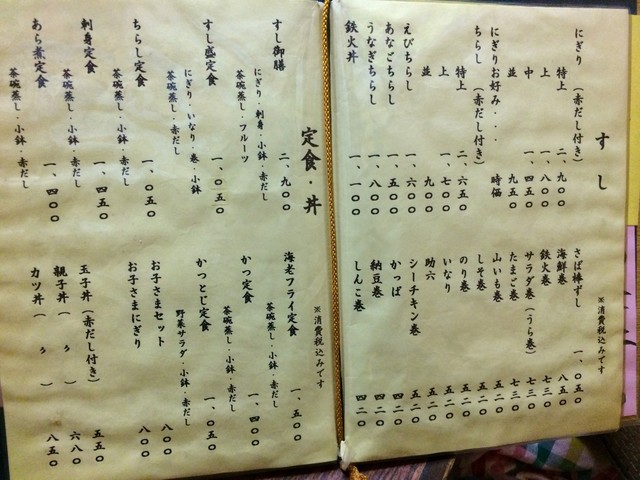 すし
※消費税込みです
にぎり (赤だし付き)
特上 二、九〇〇
上 一、八〇〇
中 一、四五〇
並 九五〇
にぎりお好み・・・ 時価
ちらし (赤だし付き)
特上 二、六五〇
上 一、七〇〇
並 九〇〇
えびちらし 一、六〇〇
あなごちらし 一、五〇〇
うなぎちらし 一、八〇〇
鉄火丼 一、一〇〇
さば棒ずし 一、〇五〇
海鮮巻 八五〇
鉄火巻 七三〇
サラダ巻(うら巻) 七三〇
たまご巻 七三〇
山いも巻 五二〇
しそ巻 五二〇
のり巻 五二〇
いなり 五二〇
助六 五二〇
シーチキン巻 五二〇
かっぱ 四二〇
納豆巻 四二〇
しんこ巻 四二〇
定食・丼
※消費税込みです
すし御膳 二、九〇〇
にぎり・刺身・小鉢・赤だし
茶碗蒸し・フルーツ
すし盛定食 一、〇五〇
にぎり・いなり・巻・小鉢
茶碗蒸し・赤だし
ちらし定食 一、〇五〇
茶碗蒸し・小鉢・赤だし
刺身定食 一、四五〇
茶碗蒸し・小鉢・赤だし
あら煮定食 一、四〇〇
茶碗蒸し・小鉢・赤だし
海老フライ定食 一、五〇〇
茶碗蒸し・小鉢・赤だし
かつ定食 一、四〇〇
茶碗蒸し・小鉢・赤だし
かつとじ定食 一、〇五〇
野菜サラダ・小鉢・赤だし
お子さまセット 八〇〇
お子さまにぎり 八〇〇
玉子丼(赤だし付き) 五五〇
親子丼( 〃 ) 六八〇
カツ丼( 〃 ) 八五〇